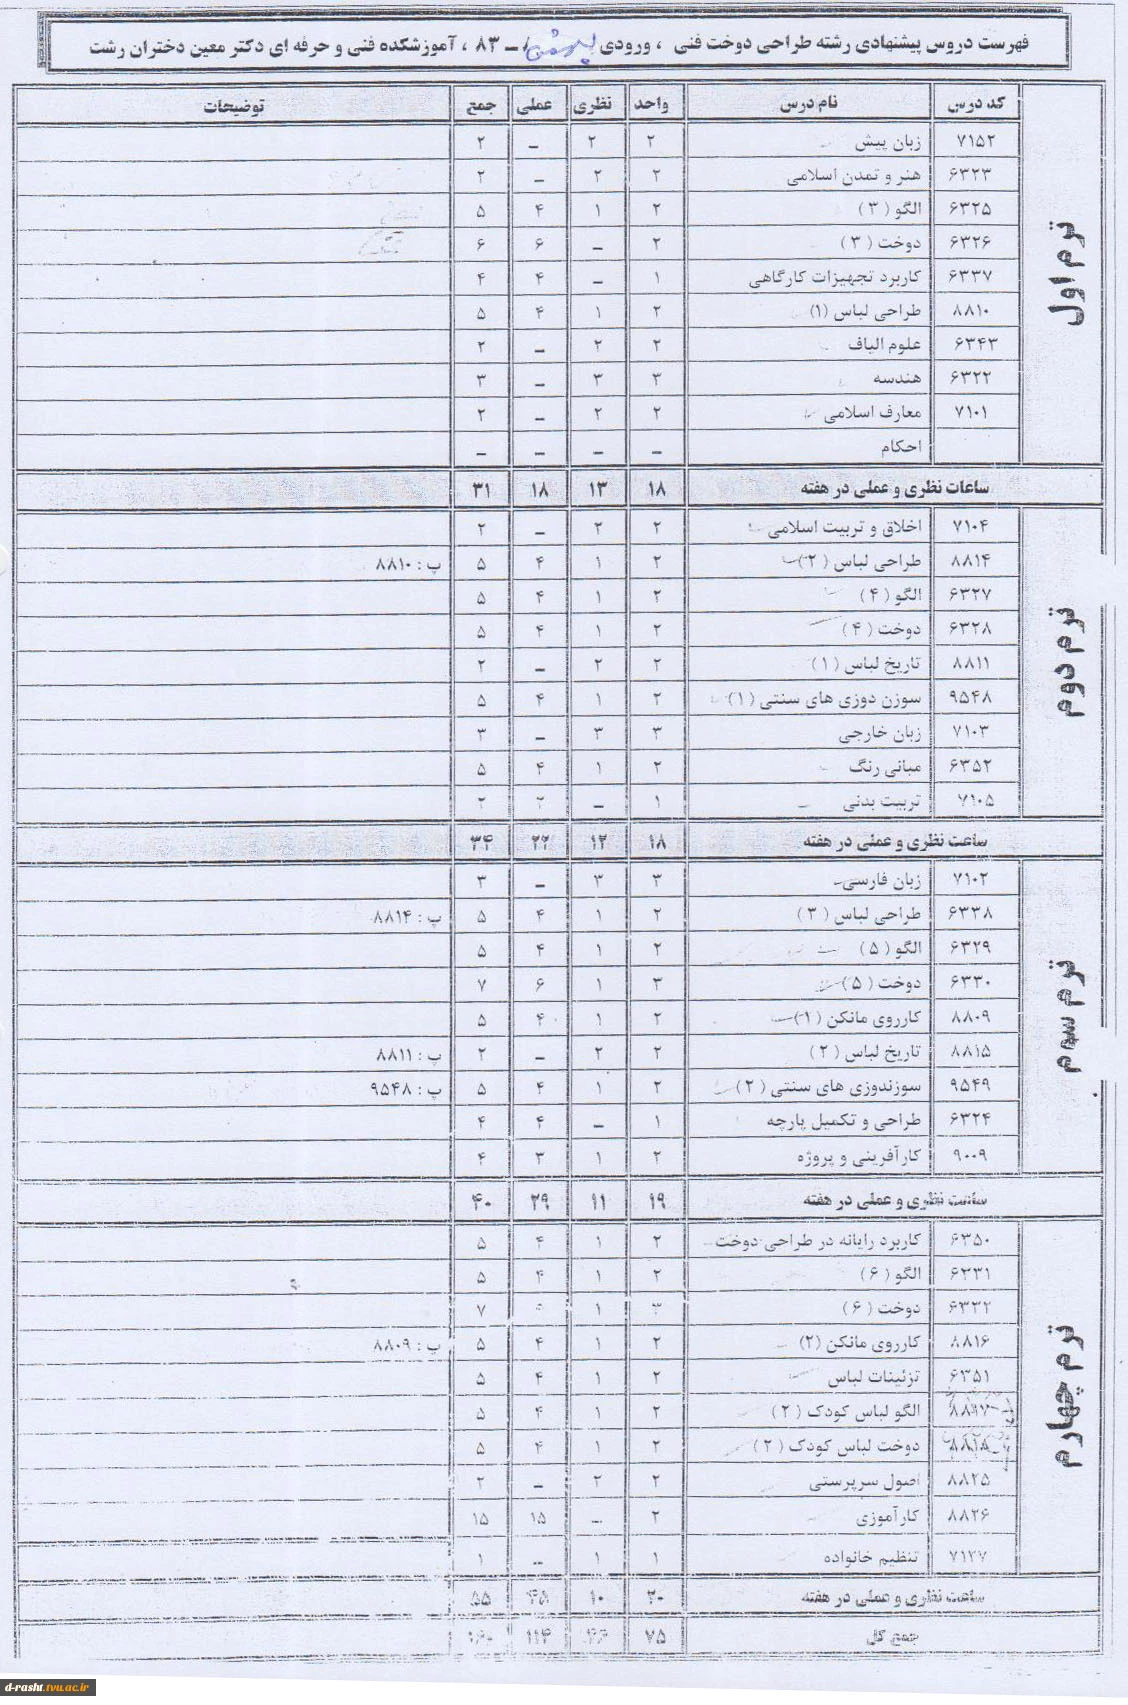 فهرست دروس پیشنهادی رشته طراحی دوخت فنی ، ورودی ۸۳ ، آموزشکده فنی و حرفه ای دکتر معین دختران رشت
کد درس نام درس واحد نظری عملی جمع توضیحات
ترم اول
۷۱۵۲ زبان پیش ۲ ۲ – ۲
۶۳۲۳ هنر و تمدن اسلامی ۲ ۲ – ۲
۶۳۲۵ الگو ( ۳ ) ۲ ۱ ۴ ۵
۶۳۲۶ دوخت ( ۳ ) ۲ – ۶ ۶
۶۳۳۷ کاربرد تجهیزات کارگاهی ۱ – ۴ ۴
۸۸۱۰ طراحی لباس (۱) ۲ ۱ ۴ ۵
۶۳۴۳ علوم الیاف ۲ ۲ – ۲
۶۳۲۲ هندسه ۳ ۳ – ۳
۷۱۰۱ معارف اسلامی ۲ ۲ – ۲
احکام – – – –
ساعات نظری و عملی در هفته ۱۸ ۱۳ ۱۸ ۳۱
ترم دوم
۷۱۰۴ اخلاق و تربیت اسلامی ۲ ۲ – ۲
۸۸۱۴ طراحی لباس ( ۲ ) ۲ ۱ ۴ ۵ پ : ۸۸۱۰
۶۳۲۷ الگو ( ۴ ) ۲ ۱ ۴ ۵
۶۳۲۸ دوخت ( ۴ ) ۲ ۱ ۴ ۵
۸۸۱۱ تاریخ لباس ( ۱ ) ۲ ۲ – ۲
۹۵۴۸ سوزن دوزی های سنتی ( ۱ ) ۲ ۱ ۴ ۵
۷۱۰۳ زبان خارجی ۳ ۳ – ۳
۶۳۵۲ مبانی رنگ ۲ ۱ ۴ ۵
۷۱۰۵ تربیت بدنی ۱ – ۲ ۲
ساعت نظری و عملی در هفته ۱۸ ۱۲ ۲۲ ۳۴
ترم سوم
۷۱۰۲ زبان فارسی ۳ ۳ – ۳
۶۳۳۸ طراحی لباس ( ۳ ) ۲ ۱ ۴ ۵ پ : ۸۸۱۴
۶۳۲۹ الگو ( ۵ ) ۲ ۱ ۴ ۵
۶۳۳۰ دوخت ( ۵ ) ۳ ۱ ۶ ۷
۸۸۰۹ کارروی مانکن ( ۱ ) ۲ ۱ ۴ ۵
۸۸۱۵ تاریخ لباس ( ۲ ) ۲ ۲ – ۲ پ : ۸۸۱۱
۹۵۴۹ سوزندوزی های سنتی ( ۲ ) ۲ ۱ ۴ ۵ پ : ۹۵۴۸
۶۳۲۴ طراحی و تکمیل پارچه ۱ – ۴ ۴
۹۰۰۹ کارآفرینی و پروژه ۲ ۱ ۳ ۴
ساعت نظری و عملی در هفته ۱۹ ۱۱ ۲۹ ۴۰
ترم چهارم
۶۳۵۰ کاربرد رایانه در طراحی دوخت ۲ ۱ ۴ ۵
۶۳۳۱ الگو ( ۶ ) ۲ ۱ ۴ ۵
۶۳۳۲ دوخت ( ۶ ) ۳ ۱ ۷
۸۸۱۶ کارروی مانکن (۲) ۲ ۱ ۴ ۵ پ : ۸۸۰۹
۶۳۵۱ تزئینات لباس ۲ ۱ ۴ ۵
الگو لباس کودک ( ۲ ) ۲ ۱ ۴ ۵
دوخت لباس کودک ( ۲ ) ۲ ۱ ۴ ۵
۸۸۲۵ اصول سرپرستی ۲ ۲ – ۲
۸۸۲۶ کارآموزی ۲ – ۱۵ ۱۵
۷۱۲۷ تنظیم خانواده ۱ ۱ – ۱
ساعت نظری و عملی در هفته ۲۰ ۱۰ ۴۵ ۵۵
جمع کل ۷۵ ۱۱۴ ۱۶۰
d-rasht.tvu.ac.ir